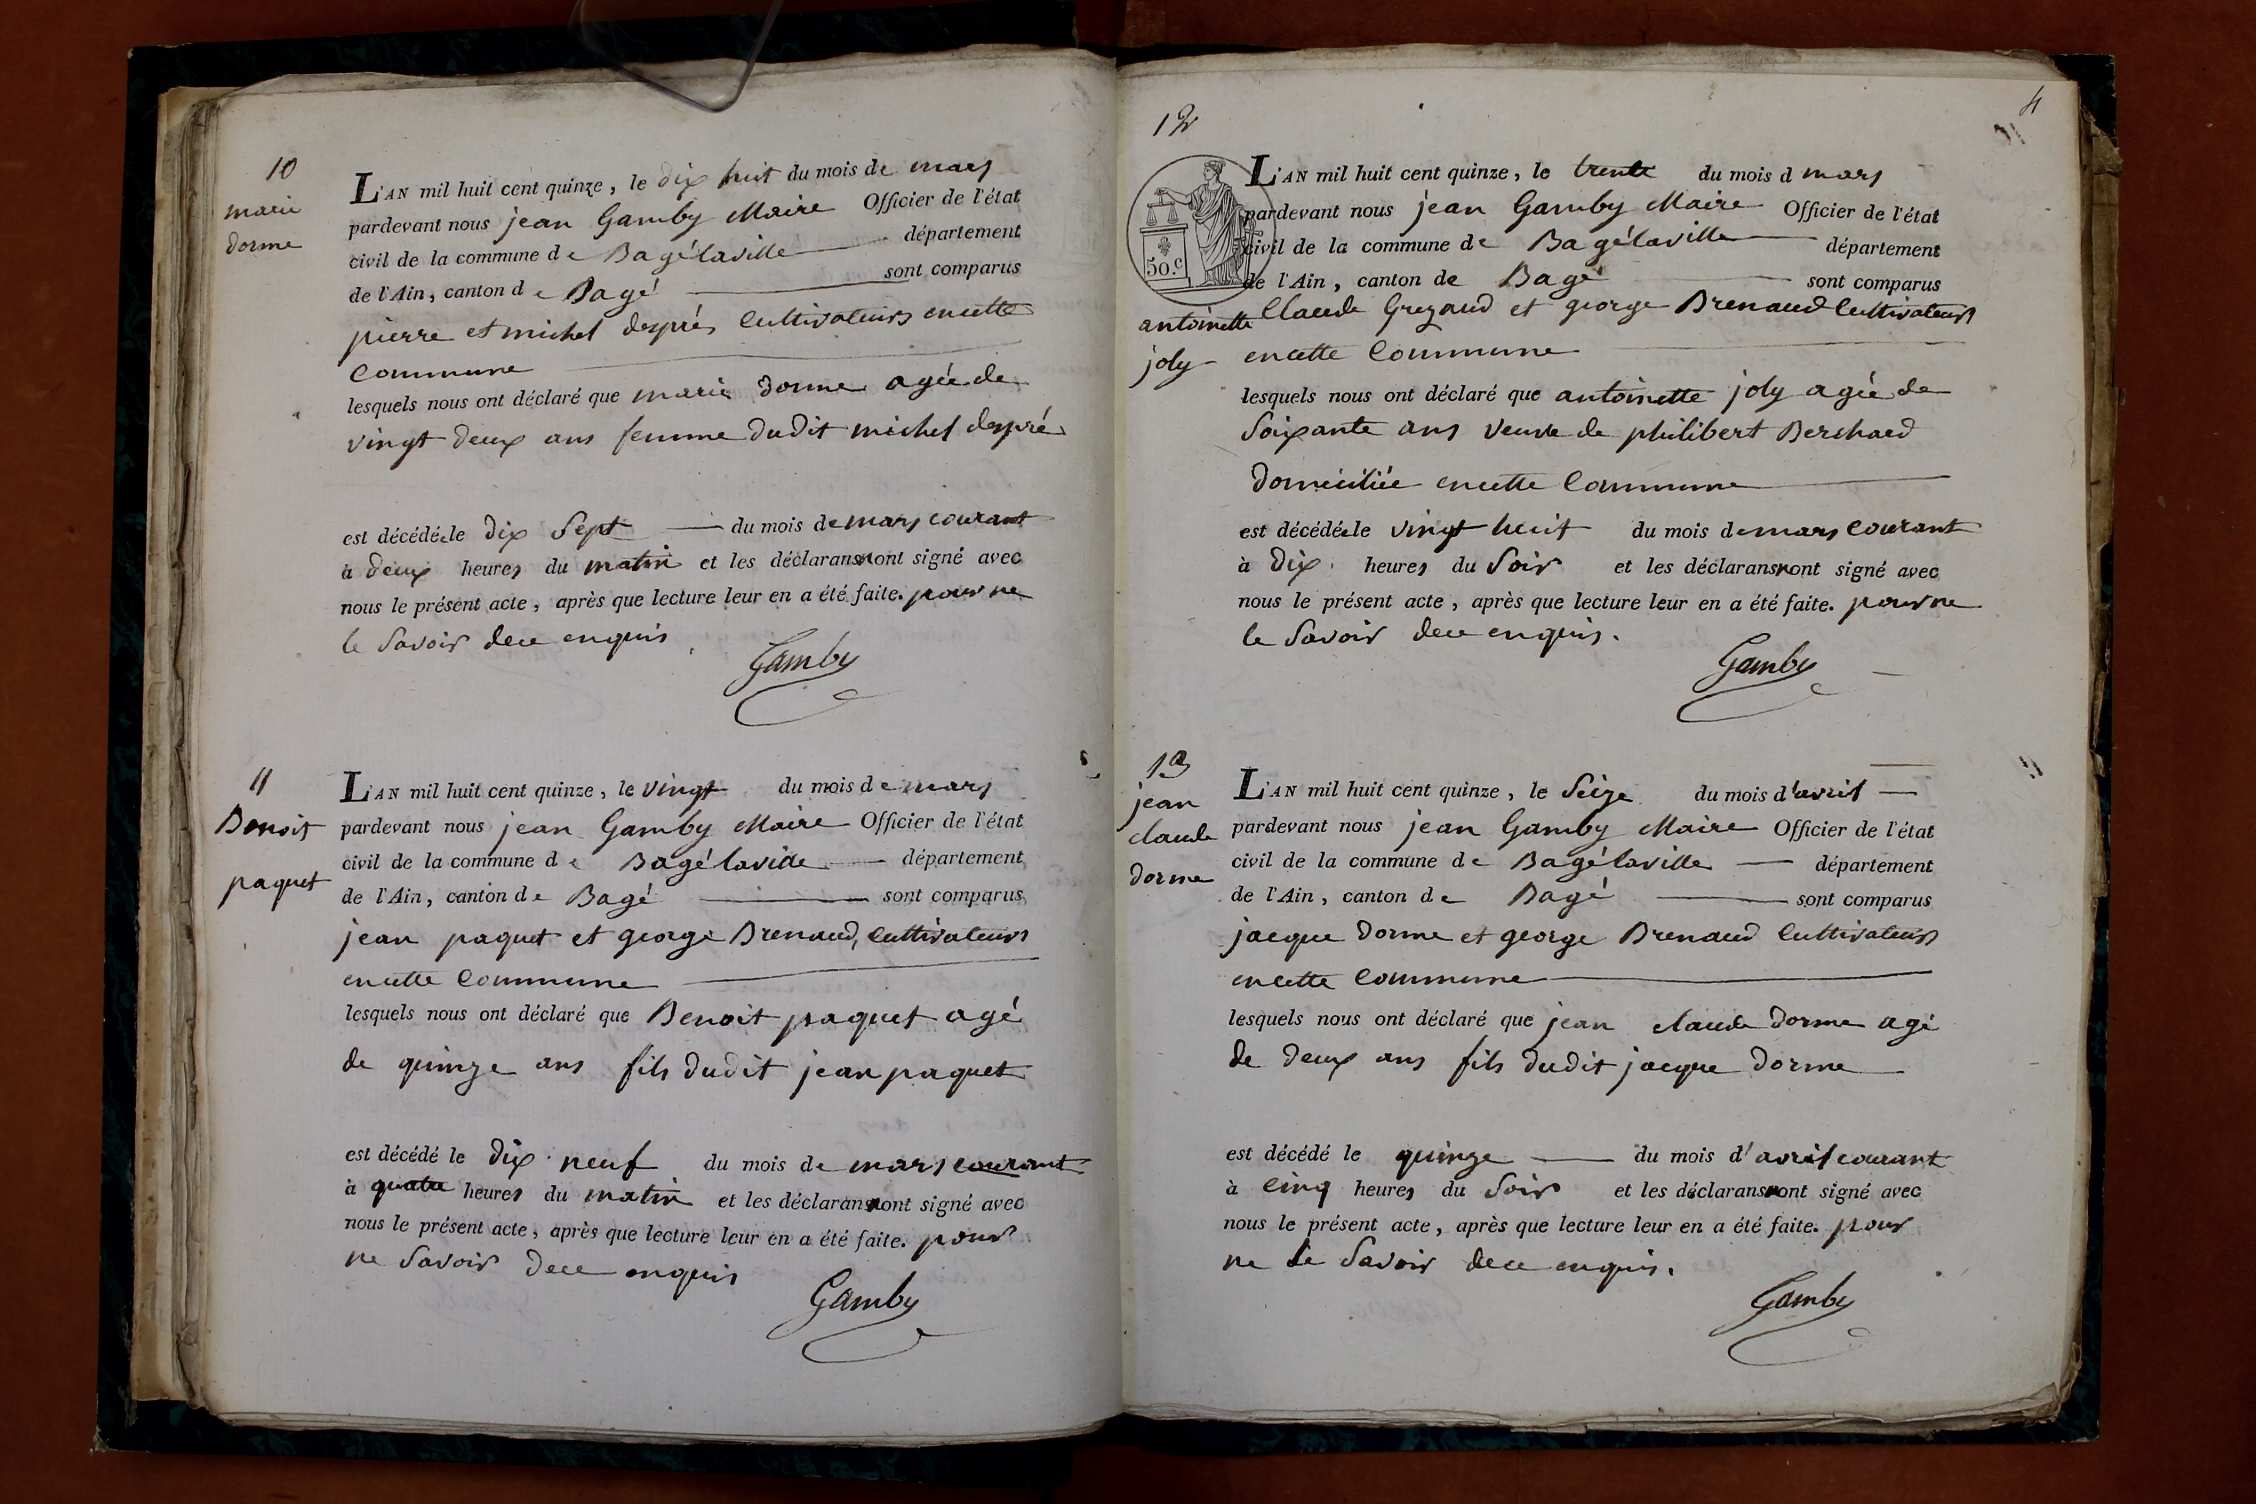 10
marie
dorme
L'AN mil huit cent quinze, le dix huit du mois de mars
pardevant nous jean Gamby Maire Officier de l'état
civil de la commune de Bagélaville département
de l'Ain, canton de Bagé sont comparus
pierre et michel despré cultivateurs en cette
commune
lesquels nous ont déclaré que marie dorme agée de
vingt deux ans femme dudit michel despré
est décédée le dix sept du mois de mars courant
à deux heures du matin et les déclarans n'ont signé avec
nous le présent acte, après que lecture leur en a été faite. pour ne
le savoir de ce enquis
Gamby
11
Benoit
paquet
L'AN mil huit cent quinze, le vingt du mois de mars
pardevant nous jean Gamby Maire Officier de l'état
civil de la commune de Bagélaville département
de l'Ain, canton de Bagé sont comparus
jean paquet et george Brenaud, cultivateurs
en cette commune
lesquels nous ont déclaré que Benoit paquet agé
de quinze ans fils dudit jean paquet
est décédé le dix neuf du mois de mars courant
à quatre heures du matin et les déclarans n'ont signé avec
nous le présent acte, après que lecture leur en a été faite. pour
ne savoir de ce enquis
Gamby
4
12
50.c
antoinette
joly
L'AN mil huit cent quinze, le trente du mois d mars
pardevant nous jean Gamby Maire Officier de l'état
civil de la commune de Bagélaville département
de l'Ain, canton de Bagé sont comparus
Claude Grezaud et george Brenaud cultivateurs
en cette commune
lesquels nous ont déclaré que antoinette joly agée de
soixante ans veuve de philibert Berchard
domiciliée en cette commune
est décédée le vingt huit du mois de mars courant
à dix heures du soir et les déclarans n'ont signé avec
nous le présent acte, après que lecture leur en a été faite. pour ne
le savoir de ce enquis.
Gamby
13
jean
claude
dorme
L'AN mil huit cent quinze, le seize du mois d'avril
pardevant nous jean Gamby Maire Officier de l'état
civil de la commune de Bagélaville département
de l'Ain, canton de Bagé sont comparus
jacque dorme et george Brenaud cultivateurs
en cette commune
lesquels nous ont déclaré que jean claude dorme agé
de deux ans fils dudit jacque dorme
est décédé le quinze du mois d'avril courant
à cinq heures du soir et les déclarans n'ont signé avec
nous le présent acte, après que lecture leur en a été faite. pour
ne le savoir de ce enquis.
Gamby